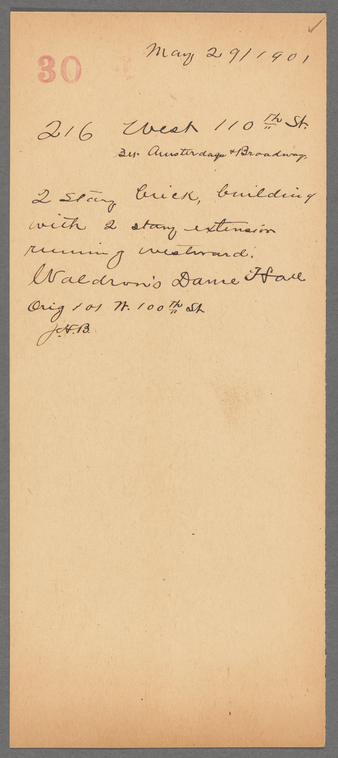 30
May 29/1901
216 West 110th St.
Bet. Amsterdam & Broadway.
2 story brick, building
with 2 story extension
running westward.
Waldron's Dance Hall
Orig 101 W. 100th St
J.H.B.